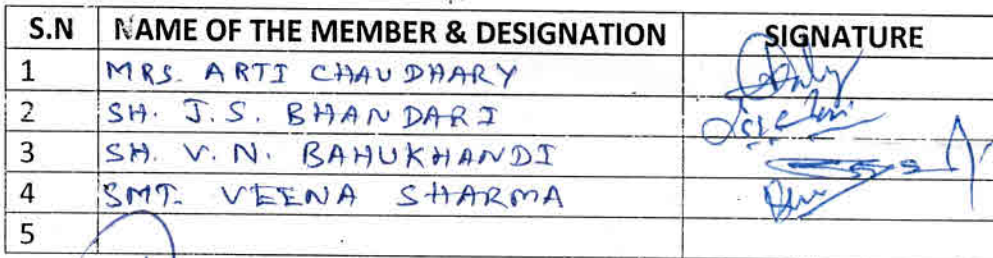 S.N NAME OF THE MEMBER & DESIGNATION SIGNATURE
1 MRS. ARTI CHAUDHARY
2 SH. J.S. BHANDARI
3 SH. V.N. BAHUKHANDI
4 SMT. VEENA SHARMA
5